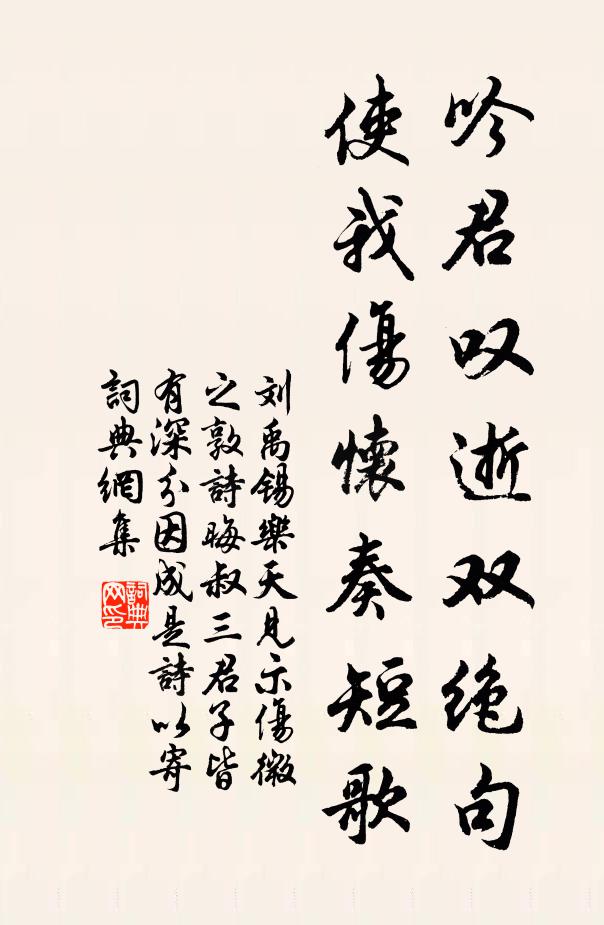 吟君叹逝双绝句
使我傷懷奏短歌
刘禹锡樂天見示傷微
之敦詩晦叔三君子皆
有深分因成是詩以寄
詞典網集
詞典网印